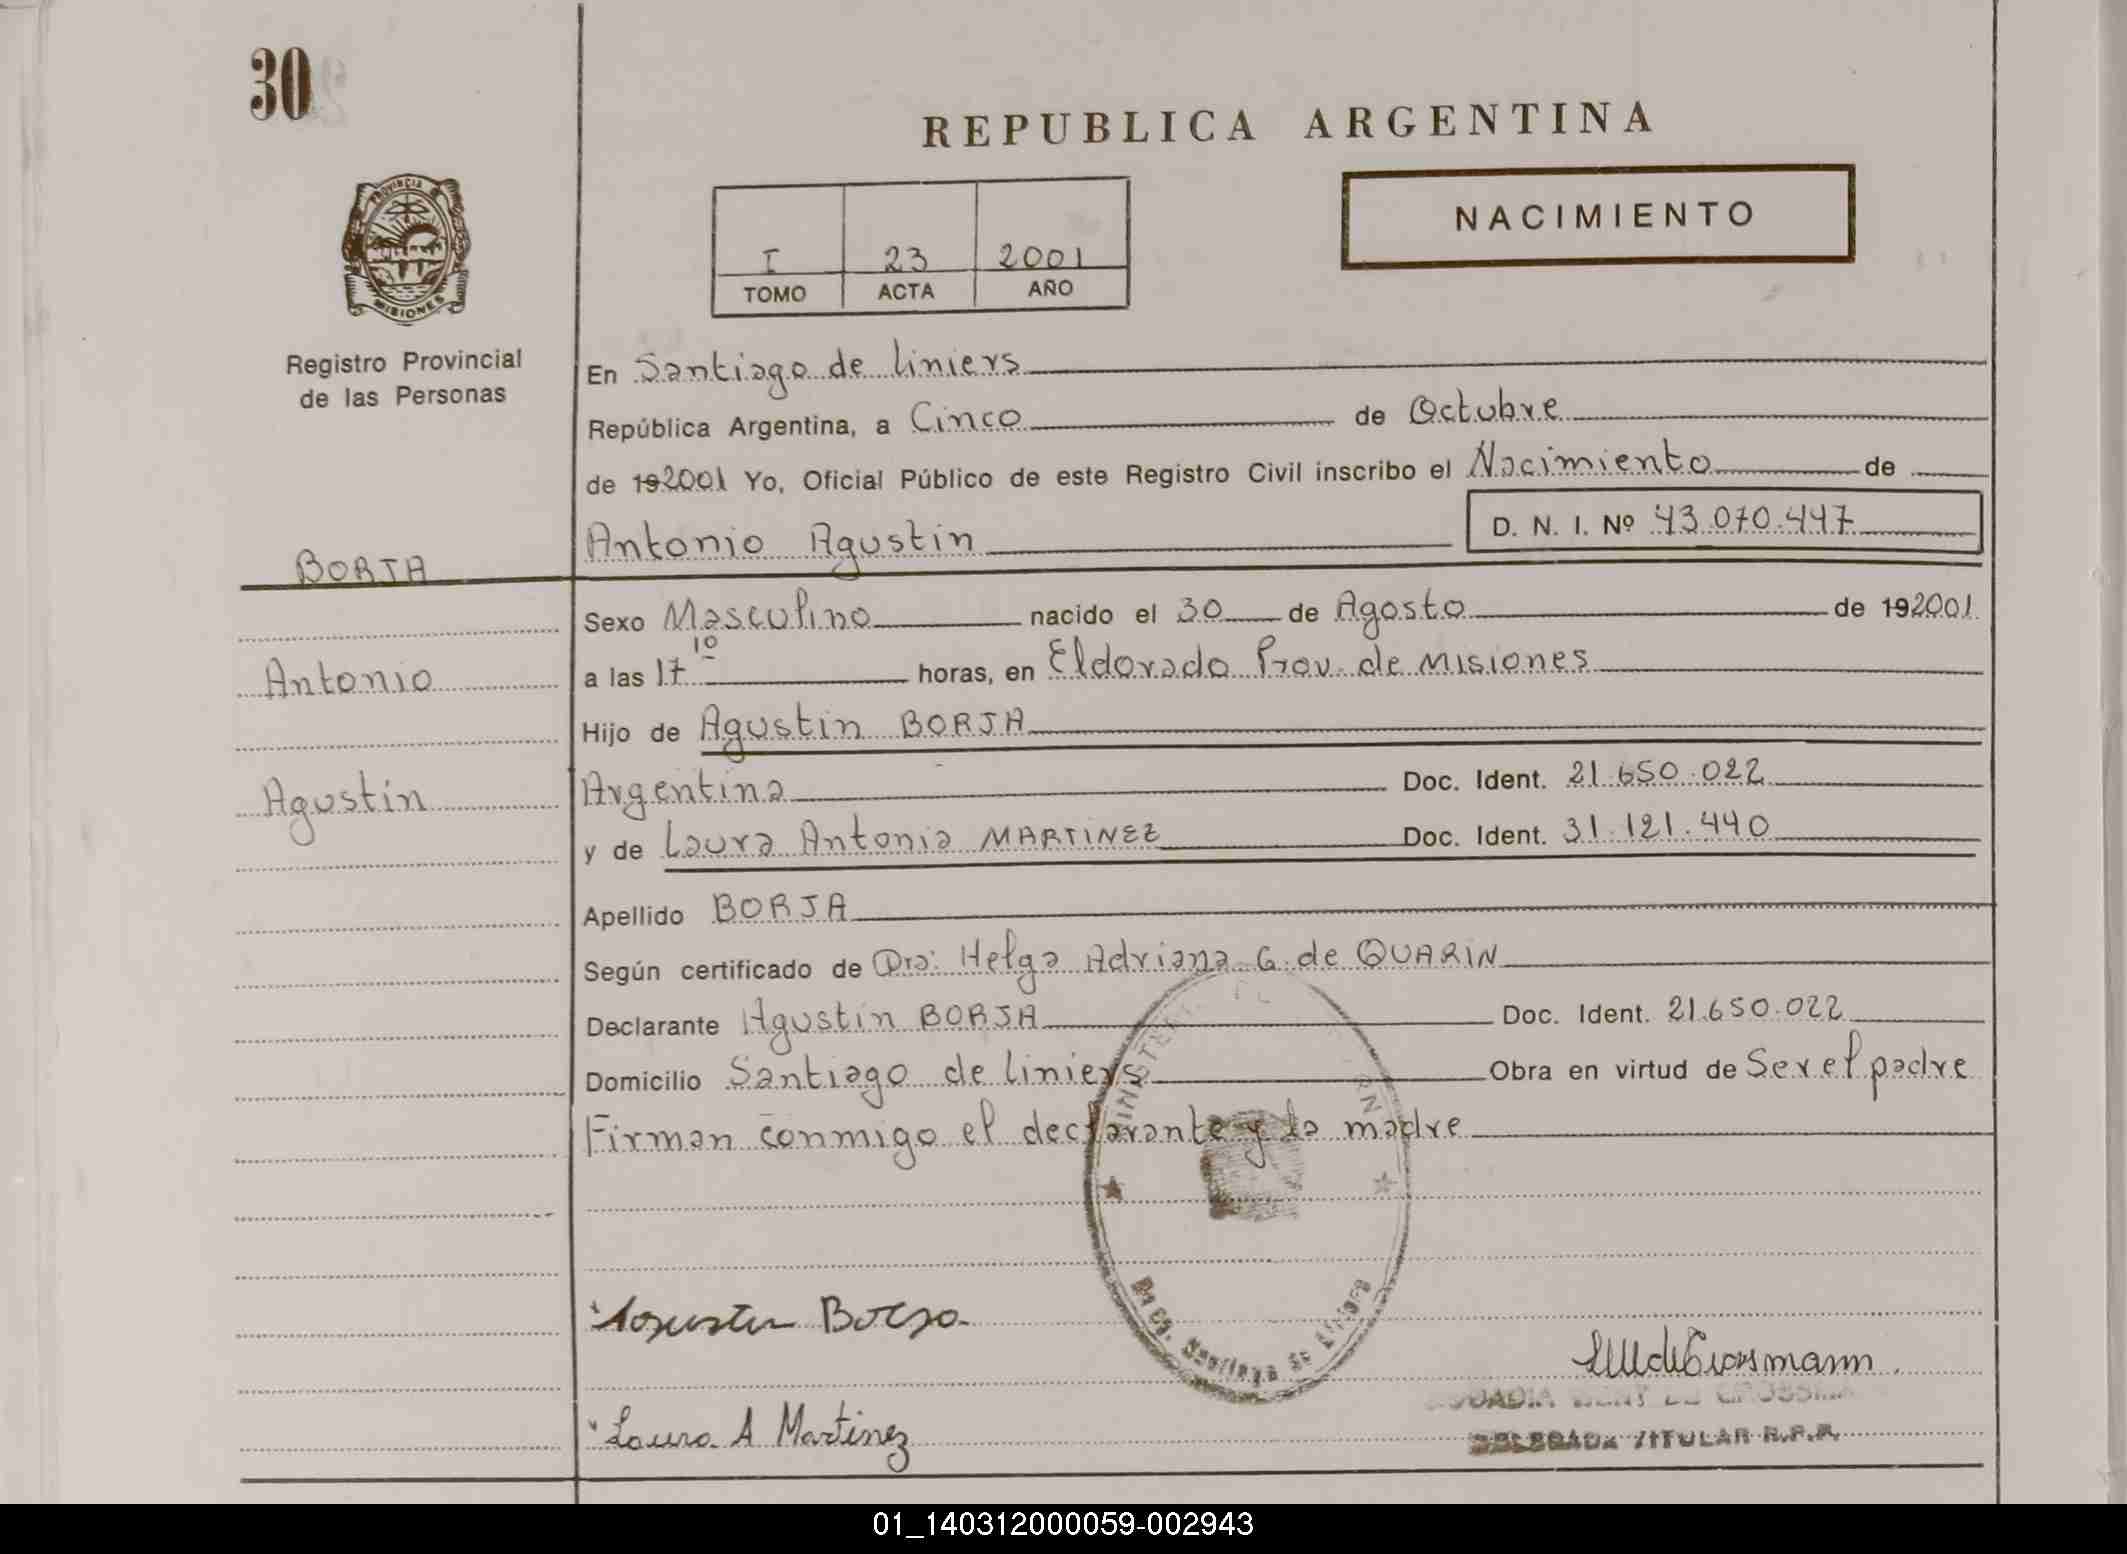 30
REPUBLICA ARGENTINA
NACIMIENTO
I 23 2001
TOMO ACTA AÑO
PROVINCIA
MISIONES
Registro Provincial
de las Personas
En Santiago de Liniers
República Argentina, a Cinco de Octubre
de 192001 Yo, Oficial Público de este Registro Civil inscribo el Nacimiento de
BORJA
Antonio Agustin
D. N. I. Nº 43.070.447
Sexo Masculino nacido el 30 de Agosto de 192001
Antonio
a las 17 10 horas, en Eldorado Prov. de Misiones
Hijo de Agustin BORJA
Agustin
Argentina Doc. Ident. 21.650.022
y de Laura Antonia MARTINEZ Doc. Ident. 31.121.440
Apellido BORJA
Según certificado de Dra: Helga Adriana G. de QUARIN
Declarante Agustin BORJA Doc. Ident. 21.650.022
Domicilio Santiago de Liniers Obra en virtud de Ser el padre
Firman conmigo el declarante y la madre
Santiago de Liniers
Agustin Borja
Laura A Martinez
DELEGADA TITULAR R.P.P.
01_140312000059-002943